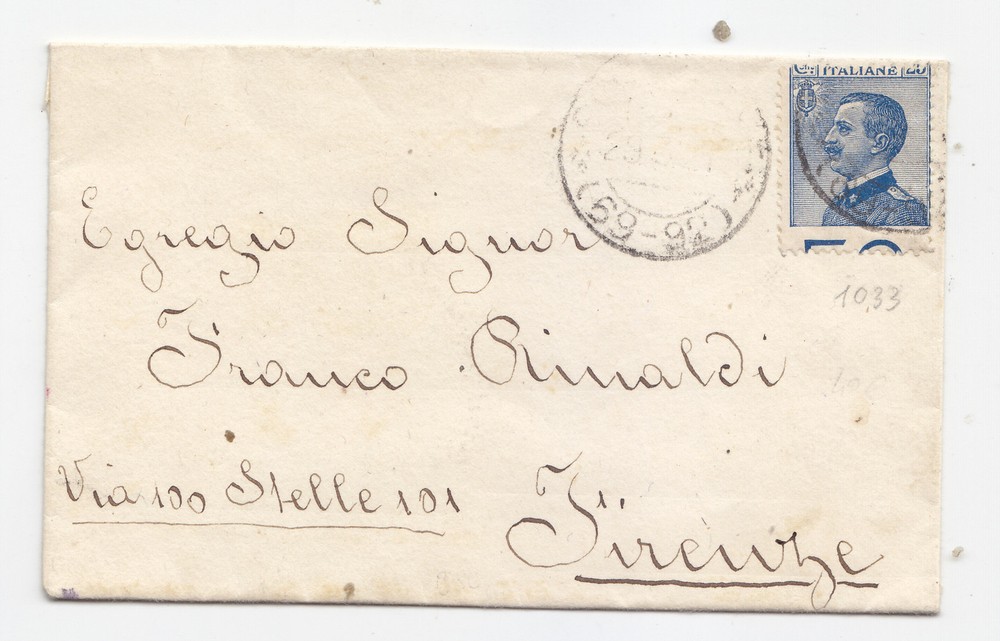 ITALIANE
(69-92)
Egregio Signor
1033
Franco Rinaldi
Via 100 Stelle 101
Firenze